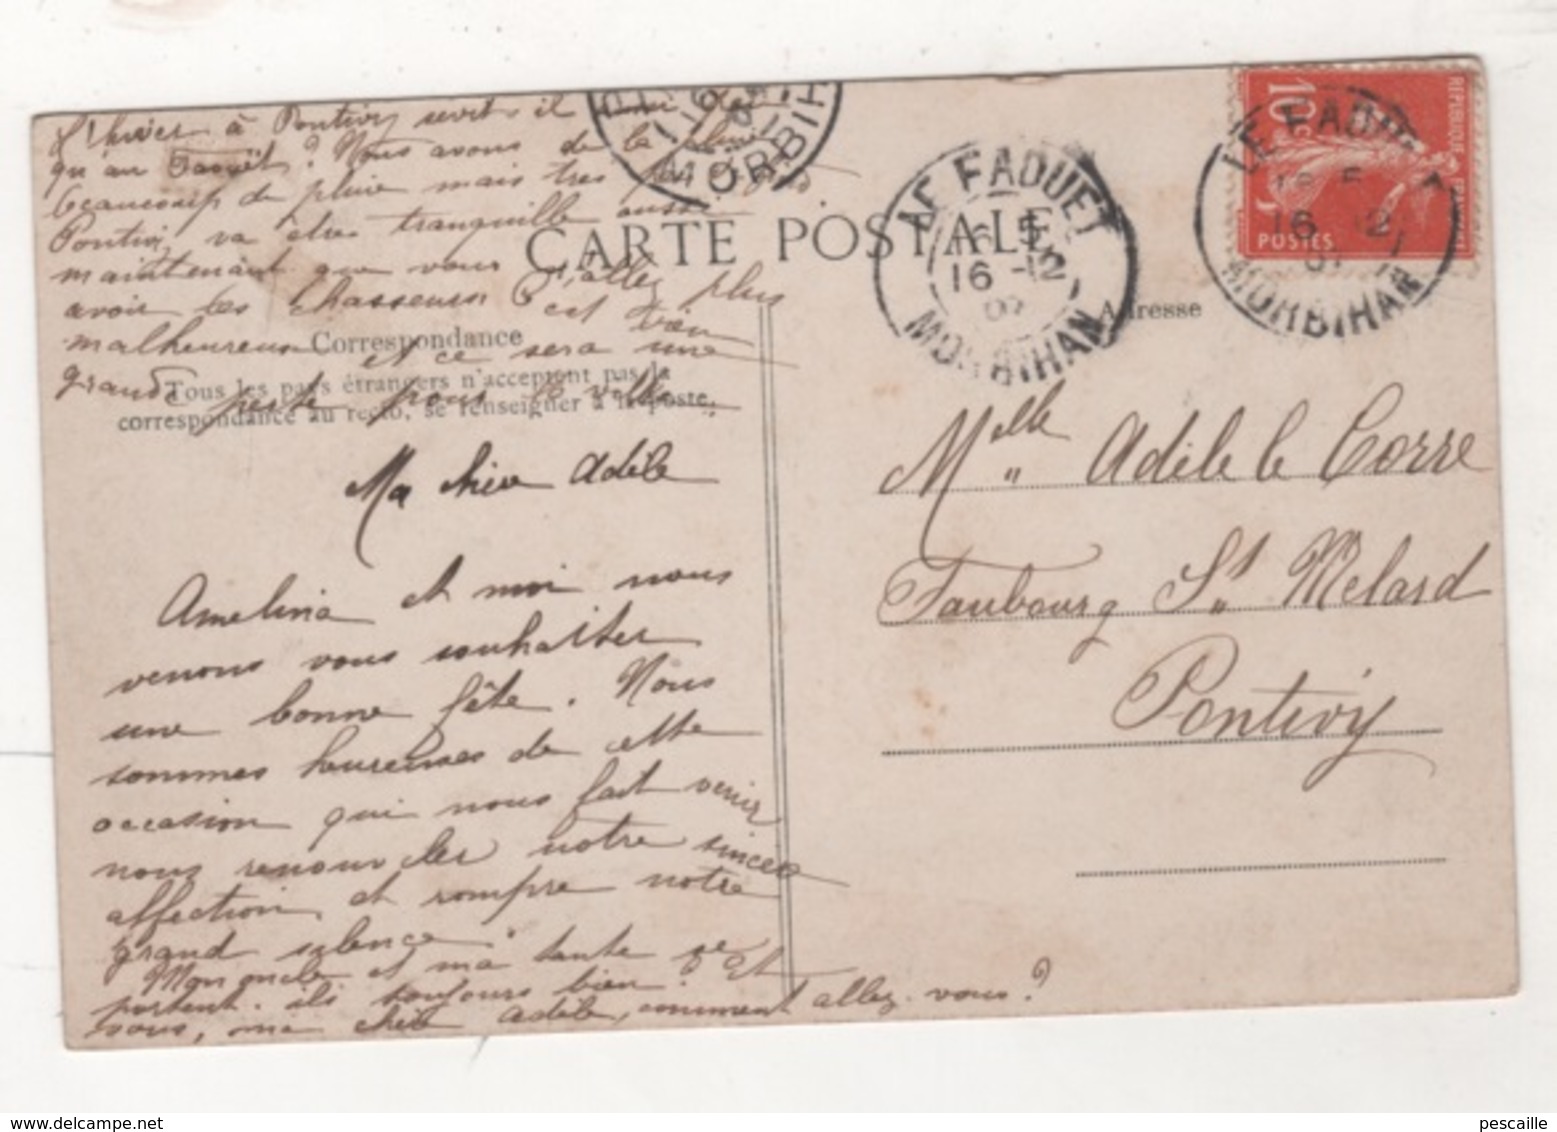 l'hiver à Pontivy serait il
qu'au Faouët? Nous avons de la pluie
beaucoup de pluie mais très peu
Pontivy va être tranquille aussi
maintenant que vous n'allez plus
avoir les chasseurs C'est bien
malheureux et ce sera une
grande perte pour la ville
CARTE POSTALE
Correspondance
Tous les pays étrangers n'acceptent pas la
correspondance au recto, se renseigner à la poste.
Ma chère Adèle
Amelina et moi nous
venons vous souhaiter
une bonne fête. Nous
sommes heureuses de cette
occasion qui nous fait venir
vous renouveler notre sincère
affection et rompre notre
grand silence.
Mon oncle et ma tante se
portent-ils toujours bien? Et
vous, ma chère Adèle, comment allez-vous?
LE FAOUET
16 -12
MORBIHAN
MORBIH
10c
REPUBLIQUE
POSTES
LE FAOU
16 12
MORBIHAN
Adresse
Melle Adèle le Corre
Faubourg St Melard
Pontivy
pescaille